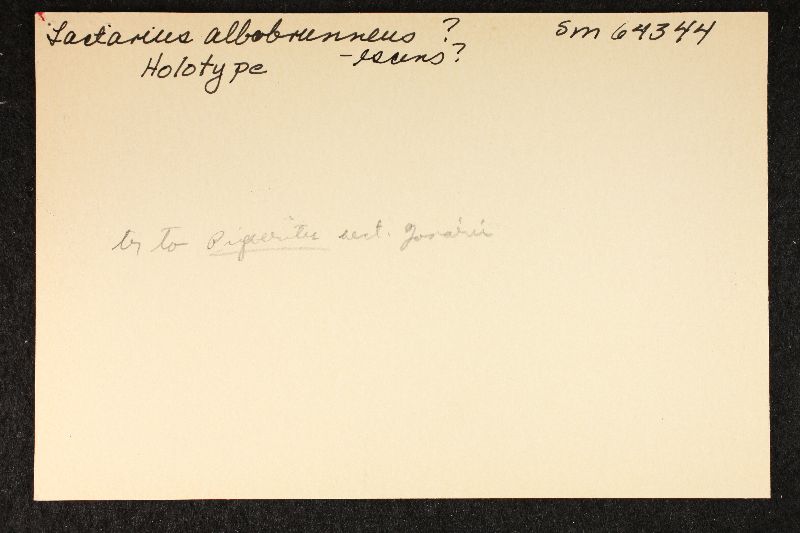 Lactarius albobrunneus ? Sm 64344
Holotype -escens?
to Piperites sect.